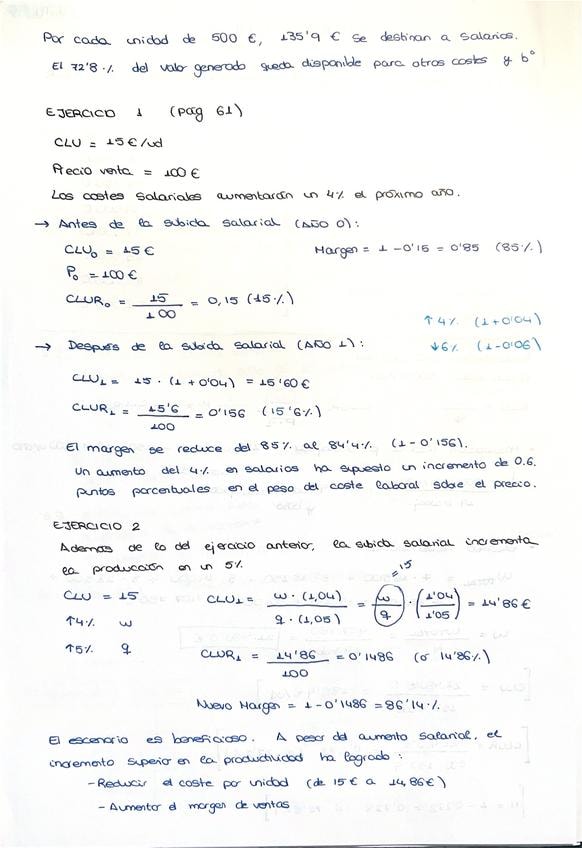 Por cada unidad de 500 €, 135'9 € se destinan a salarios.
El 72'8 % del valor generado queda disponible para otros costes y bº
EJERCICIO 1 (pág 61)
CLU = 15 €/ud
Precio venta = 100 €
Los costes salariales aumentarán un 4% el próximo año.
→ Antes de la subida salarial (AÑO 0):
CLU₀ = 15 € Margen = 1 - 0'15 = 0'85 (85%)
P₀ = 100 €
CLUR₀ = 15/100 = 0,15 (15%)
↑4% (1+0'04)
→ Después de la subida salarial (AÑO 1): ↓6% (1-0'06)
CLU₁ = 15 · (1 + 0'04) = 15'60 €
CLUR₁ = 15'6/100 = 0'156 (15'6%)
El margen se reduce del 85% al 84'4% (1 - 0'156).
Un aumento del 4% en salarios ha supuesto un incremento de 0.6.
puntos porcentuales en el peso del coste laboral sobre el precio.
EJERCICIO 2
Además de lo del ejercicio anterior, la subida salarial incrementa
la producción en un 5%
CLU = 15 CLU₁ = w · (1,04)/q · (1,05) = (w/q) · (1'04/1'05) = 14'86 €
=15
↑4% w
↑5% q
CLUR₁ = 14'86/100 = 0'1486 (o 14'86%)
Nuevo Margen = 1 - 0'1486 = 86'14%
El escenario es beneficioso. A pesar del aumento salarial, el
incremento superior en la productividad ha logrado:
- Reducir el coste por unidad (de 15 € a 14,86 €)
- Aumentar el margen de ventas